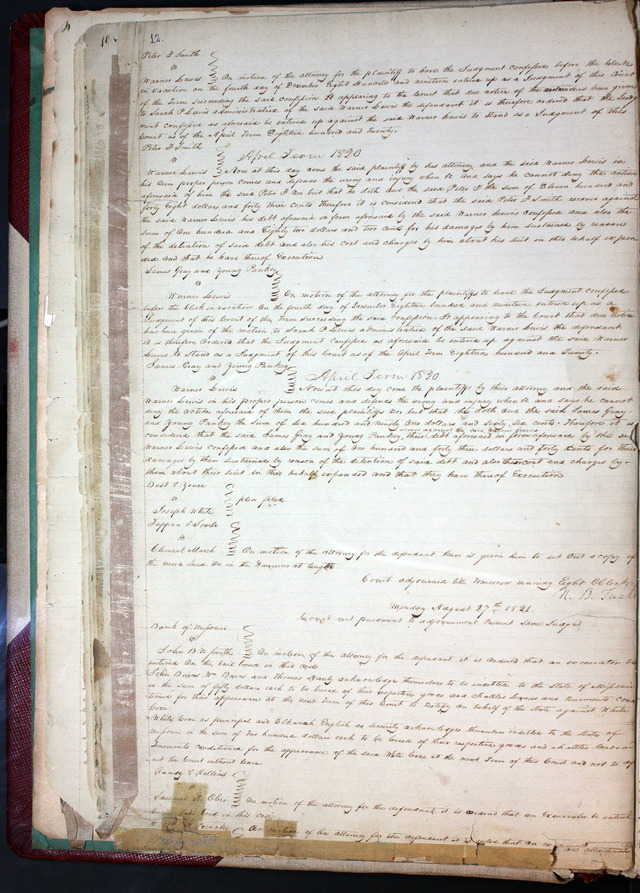 12.
Peter F Smith
vs
Warner Lewis On motion of the attorney for the plaintiff to have the Judgment confessed before the Clerk
in vacation on the fourth day of December Eight Hundred and nineteen entered up as a Judgment of this Court
of the Term succeeding the said confession It appearing to the Court that due notice of the motion has been given
to Sarah P Lewis administratrix of the said Warner Lewis the defendant it is therefore ordered that the Judg
ment confessed as aforesaid be entered up against the said Warner Lewis to Stand as a Judgment of this
Court as of the April Term Eighteen hundred and Twenty.
Peter F Smith
vs April Term 1820
Warner Lewis Now at this day came the said plaintiff by his attorney and the said Warner Lewis in
his own proper person comes and defends the wrong and injury when &c and says he cannot deny the action
aforesaid of him the said Peter F Nor but that he doth owe the said Peter F the sum of Eleven hundred and
forty Eight dollars and forty three cents Therefore it is considered that the said Peter F Smith recover against
the said Warner Lewis his debt aforesaid in form aforesaid by the said Warner Lewis confessed and also the
sum of One hundred and Eighty two dollars and two cents for his damages by him sustained by reason
of the detention of said debt and also his cost and charges by him about his suit in this behalf expen
ded and that he have thereof Execution
James Gray and Young Pankey
vs
Warner Lewis On motion of the attorney for the plaintiffs to have the Judgment confessed
before the Clerk in vacation on the fourth day of December Eighteen hundred and nineteen entered up as a
Judgment of this Court of the Term succeeding the said confession It appearing to the Court that due notice
has been given of the motion to Sarah P Lewis administratrix of the said Warner Lewis the defendant
it is therefore ordered that the Judgment confessed as aforesaid be entered up against the said Warner
Lewis to Stand as a Judgment of this Court as of the April Term Eighteen hundred and Twenty.
James Gray and Young Pankey
vs April Term 1820
Warner Lewis Now at this day come the plaintiffs by their attorney and the said
Warner Lewis in his proper person comes and defends the wrong and injury when &c and says he cannot
deny the action aforesaid of them the said plaintiffs Nor but that he doth owe the said James Gray
and Young Pankey the sum of six hundred and Ninety One dollars and sixty six cents. Therefore it is
considered that the said James Gray and Young Pankey, their debt aforesaid in form aforesaid by the said
Warner Lewis confessed and also the sum of One hundred and forty three dollars and forty cents for their
damages by them sustained by reason of the detention of said debt and also their cost and charges by
them about their suit in this behalf expended and that they have thereof Execution
vs plea filed
Joseph White
Tappan & Searle
vs
Clement Marsh On motion of the attorney for the defendant leave is given him to set out a copy of
the in the at length
Court adjourned till tomorrow morning Eight OClock
N. B. Tucker
Monday August 27th 1821
Court met pursuant to adjournment present same Judge
Bank of Missouri
vs
John B N Smith On motion of the attorney for the defendant it is ordered that an exonerator be
entered on the bail bond in this case
John Bowen Wm Davis and Thomas Hardy acknowledge themselves to be indebted to the State of Missouri
in the sum of fifty dollars each to be levied of their respective goods and chattles Lands and tenements condi
tioned for their appearance at the next term of this Court to testify on behalf of the State against White
Cove
White Cove as principal and Elkanah English as security acknowledge themselves indebted to the State of
Missouri in the sum of two hundred dollars each to be levied of their respective goods and chattles lands and
tenements conditioned for the appearance of the said White Cove at the next Term of this Court and not to dep
art the Court without leave
Ramsy & Rollins
vs
Samuel K On motion of the attorney for the defendant it is ordered that an Exonerator be entered
bond in this case
On motion of the attorney for the defendant it is ordered that an